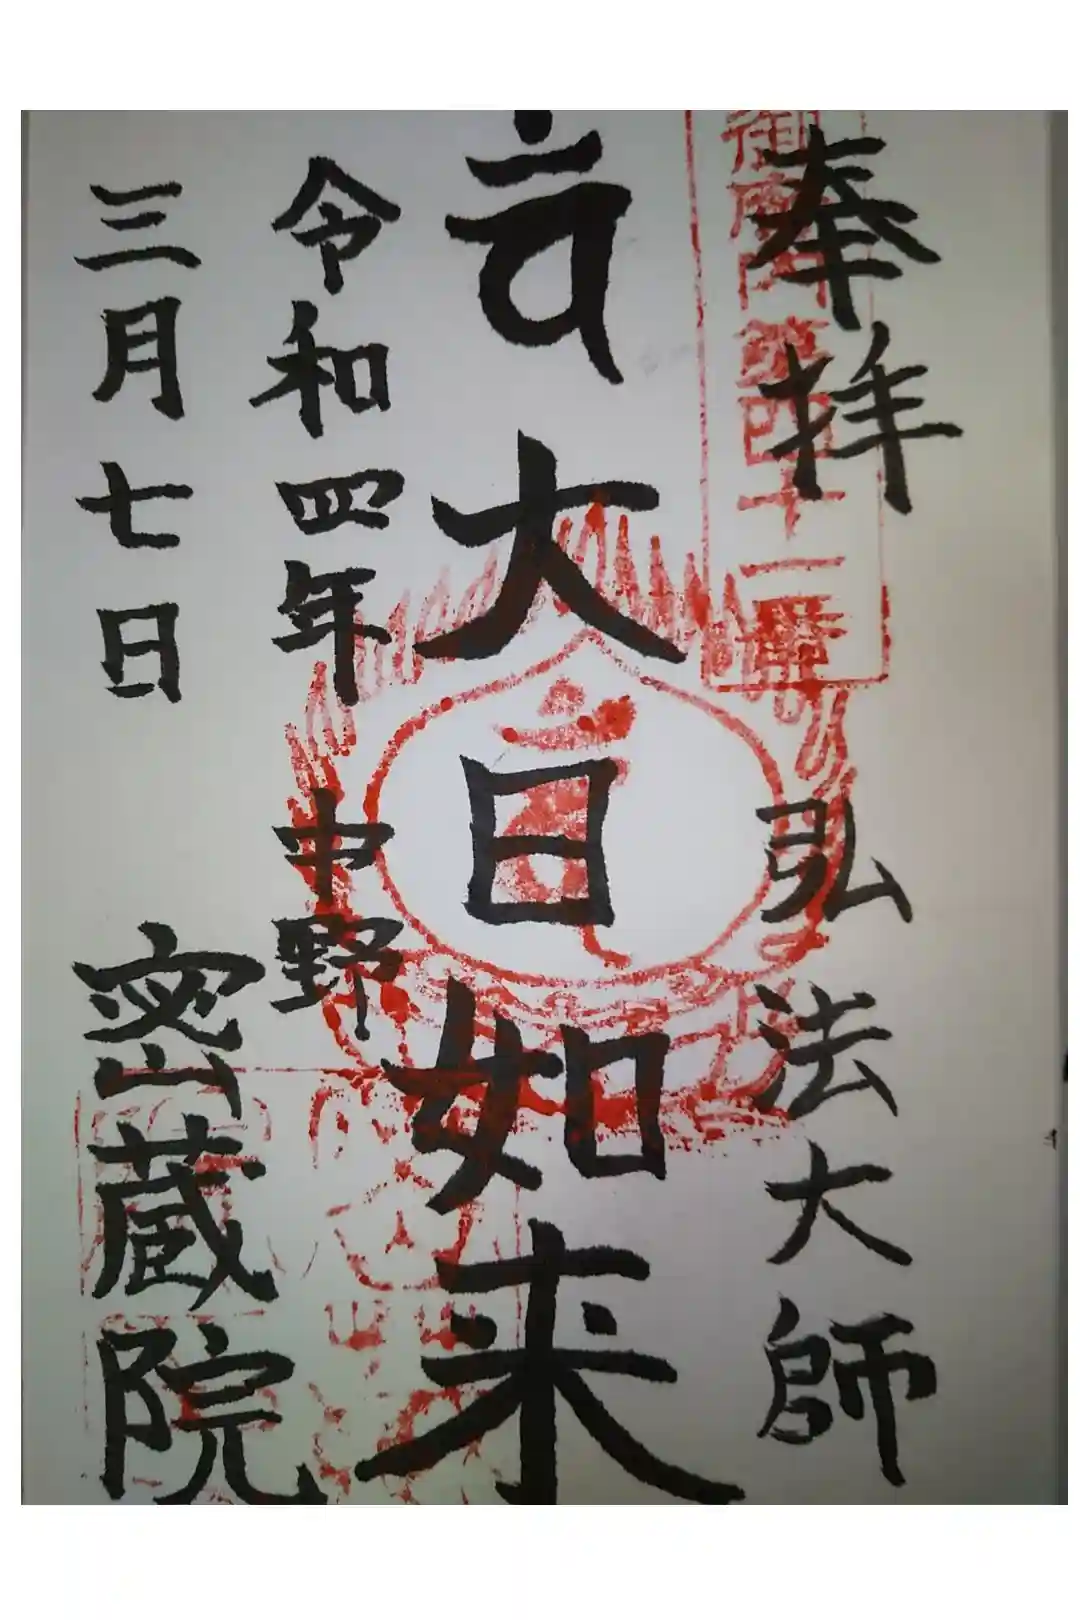 奉拝 弘法大師
御府内第四十一番
大日如来
令和四年 中野
三月七日 密蔵院